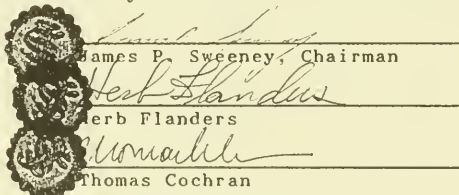 James P. Sweeney, Chairman
Herb Flanders
Herb Flanders
Thomas Cochran